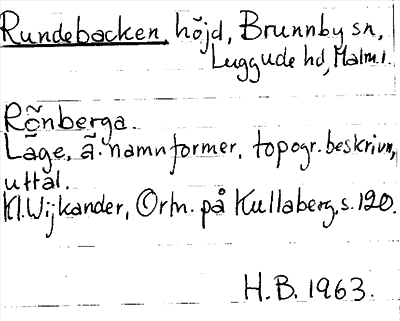 Rundebacken, höjd, Brunnby sn,
Luggude hd, Malm.l.
Rönberga.
Läge, ä. namnformer, topogr. beskrivn,
uttal.
Kl. Wijkander, Ortn. på Kullaberg, s. 120.
H.B. 1963.